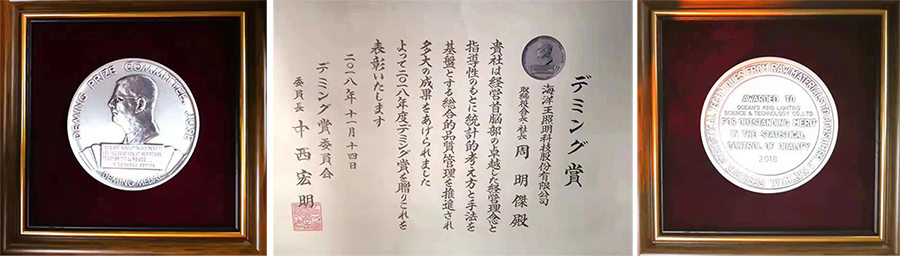 DEMING PRIZE COMMITTEE, JUSE
DEMING MEDAL
デミング賞
海洋王照明科技股份有限公司
取締役会長・社長 周明傑殿
貴社は経営首脳部の卓越した経営理念と
指導性のもとに統計的考え方と手法を
基盤とする総合的品質管理を推進され
多大の成果をあげられました
よって二〇一八年度デミング賞を贈りこれを
表彰いたします
二〇一八年十一月十四日
デミング賞委員会
委員長 中西宏明
AWARDED TO
OCEAN'S KING LIGHTING
SCIENCE & TECHNOLOGY CO., LTD
FOR OUTSTANDING MERIT
IN THE STATISTICAL
CONTROL OF QUALITY
2018
FROM RAW MATERIALS TO CONSUMER